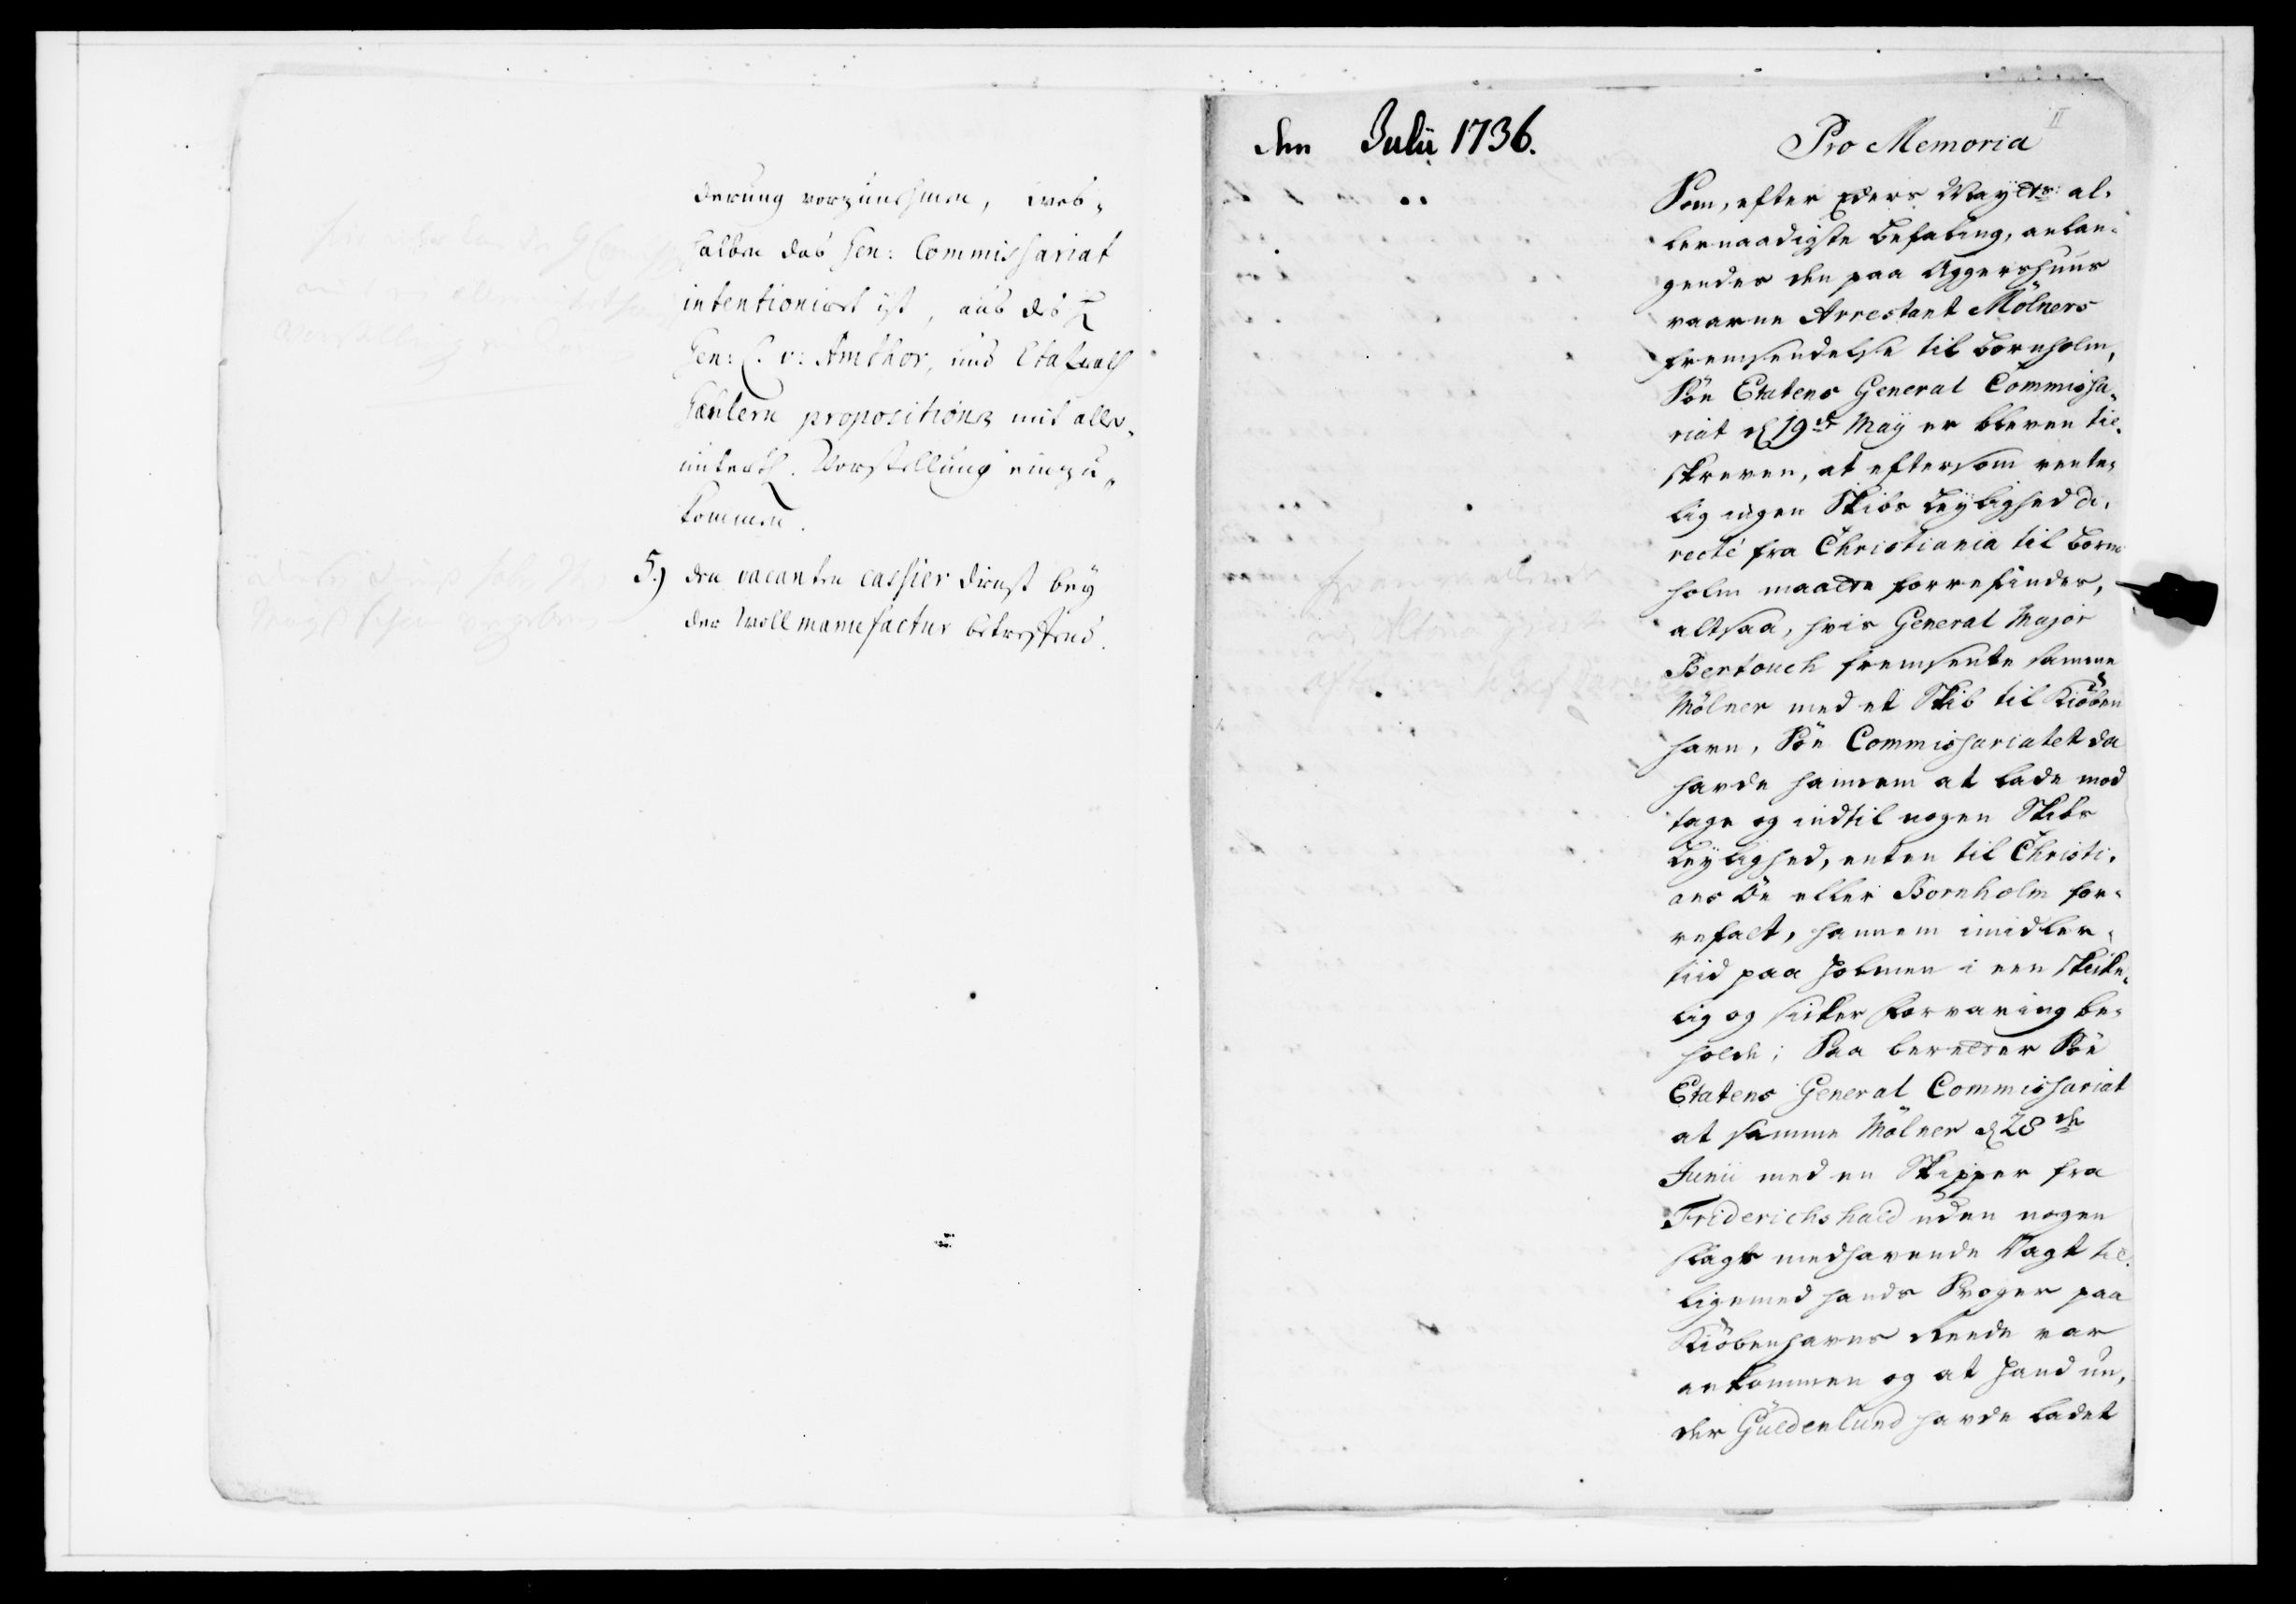 derung vorzunehmen, wes-
halben das Gen: Commissariat
intentioniret ist, aus des H
Gen: C. v: Amthor, und Etatsrath
propositions mit aller-
unterth. Vorstellung einzu-
kommen.
5.) den vacanten cassier dienst bey
der Wollmanufactur betreffend.
den Julii 1736.
Pro Memoria
II
Som, efter Eders Mayts: al-
lernaadigste befaling, anlan-
gendes den paa Aggershuus
værende Arrestant Mölners
fremsendelse til Bornholm,
Söe Etatens General Commissa-
riat d 19de May er bleven til-
skreven, at eftersom vente-
lig ingen Skibs Leylighed di-
recte fra Christiania til Born-
holm maatte forrefindes,
altsaa, hvis General Major
Bertouch fremsente samme
Mölner med et Skib til Kiöben
havn, Söe Commissariatet da
havde hannem at lade mod
tage og indtil nogen Skibs
Leylighed, enten til Christi-
ans Öe eller Bornholm for-
refalt, hannem imidler-
tiid paa Holmen i een skike-
lig og sicker forvaring be-
holde; Saa beretter Söe
Etatens General Commissariat
at samme Mölner d 28de
Junii med en Skipper fra
Friderichshald uden nogen
slags medhavende Vagt til-
ligemed hands Svoger paa
Kiöbenhavns Reede var
ankommen og at hand un-
der Guldenlund havde ladet